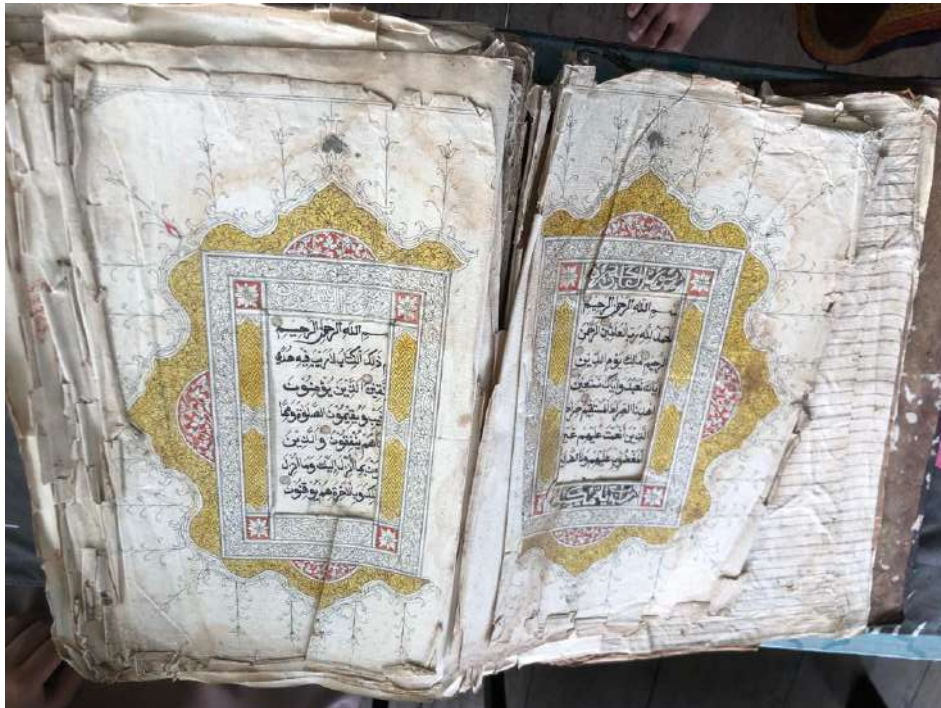 سورة الفاتحة
بسم الله الرحمن الرحيم
الحمد لله رب العلمين الرحمن
الرحيم مالك يوم الدين
اياك نعبد واياك نستعين
اهدنا الصراط المستقيم صراط
الذين انعمت عليهم غير
المغضوب عليهم ولا الضا
بسم الله الرحمن الرحيم
ذلك الكتاب لا ريب فيه هدى
الذين يؤمنون
ويقيمون الصلوة ومما
ينفقون والذين
انزل اليك وما انزل
وبالاخرة هم يوقنون